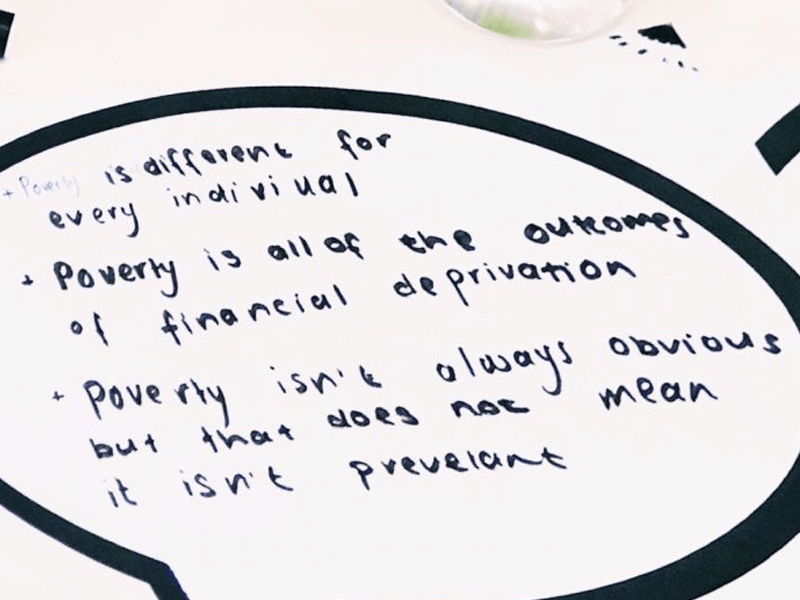 + Poverty is different for
every indiviual
+ Poverty is all of the outcomes
of financial deprivation
+ Poverty isn't always obvious
but that does not mean
it isn't prevelant